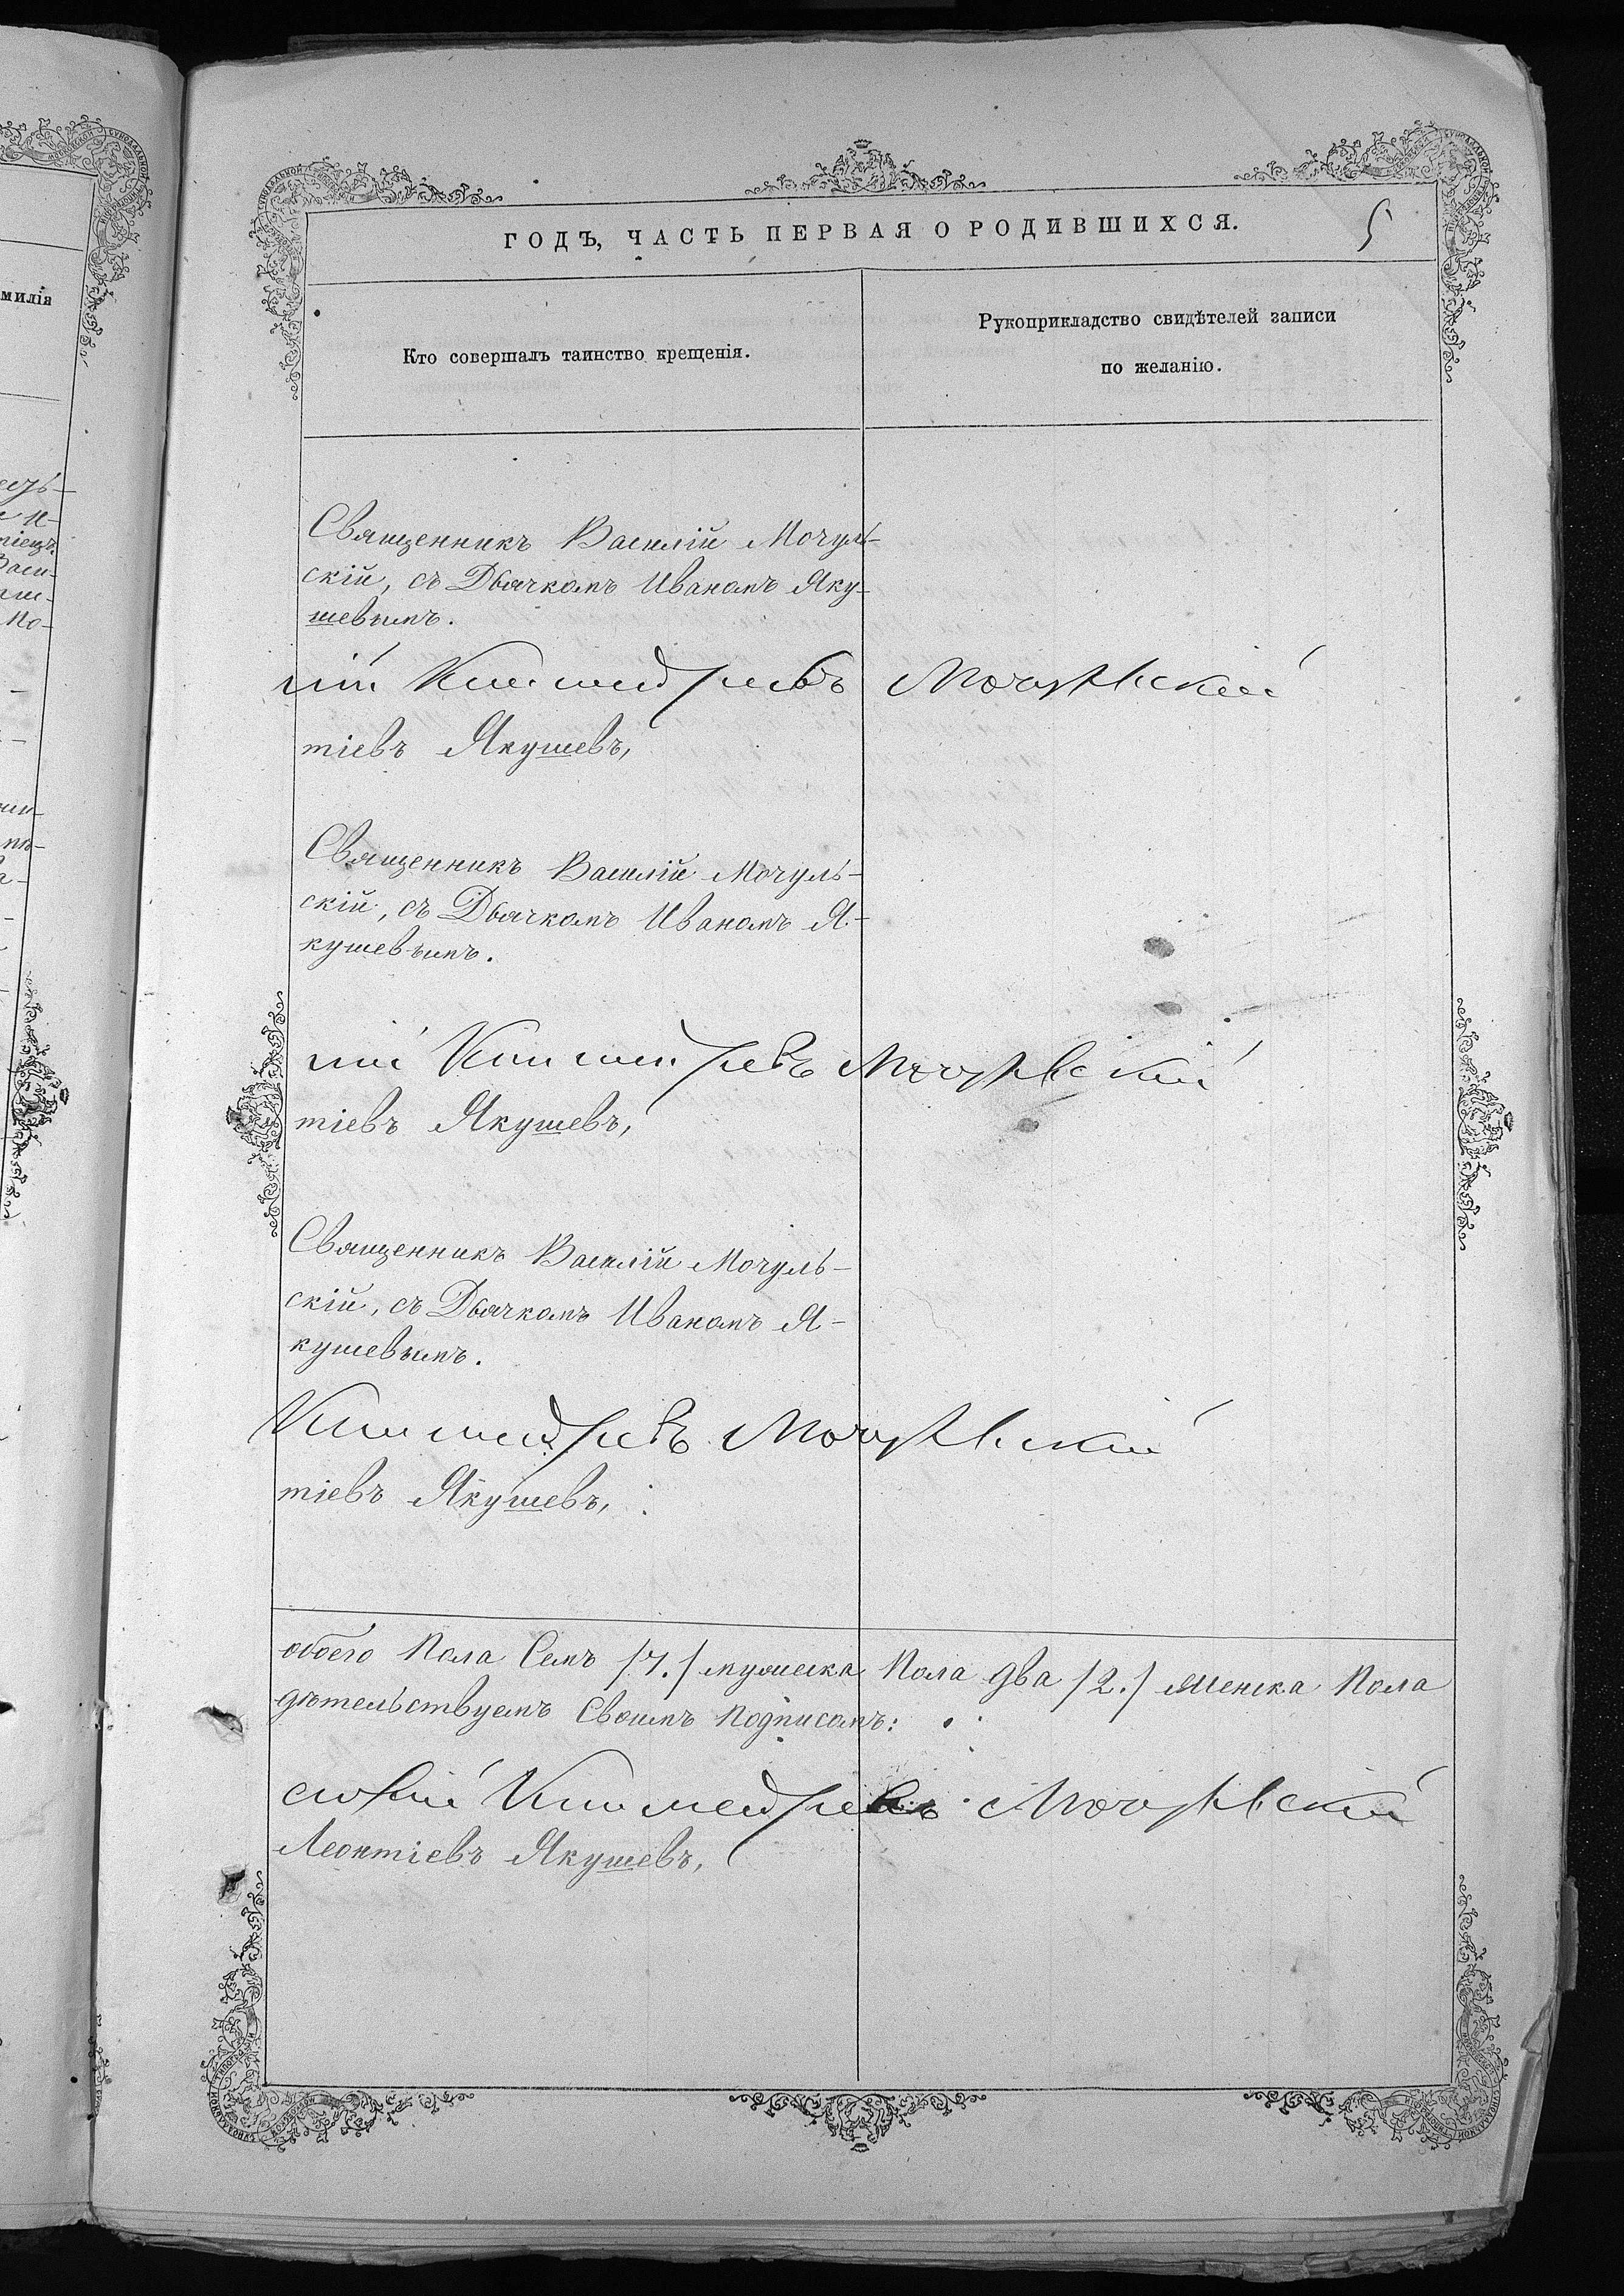 ГОДЪ, ЧАСТЬ ПЕРВАЯ О РОДИВШИХСЯ.
5
Кто совершалъ таинство крещенія.
Рукоприкладство свидѣтелей записи
по желанію.
Священникъ Василій Мочуль-
скій, съ Дьячкомъ Иваномъ Яку-
шевымъ.
Мочульскій
тіевъ Якушевъ,
Священникъ Василій Мочуль-
скій, съ Дьячкомъ Иваномъ Я-
кушевымъ.
Мочульскій
тіевъ Якушевъ,
Священникъ Василій Мочуль-
скій, съ Дьячкомъ Иваномъ Я-
кушевымъ.
Мочульскій
тіевъ Якушевъ,
обоего Пола Семъ /7./ мужеска Пола два /2./ женска Пола
дѣтельствуемъ Своимъ Подписомъ:
Мочульскій
Леонтіевъ Якушевъ,